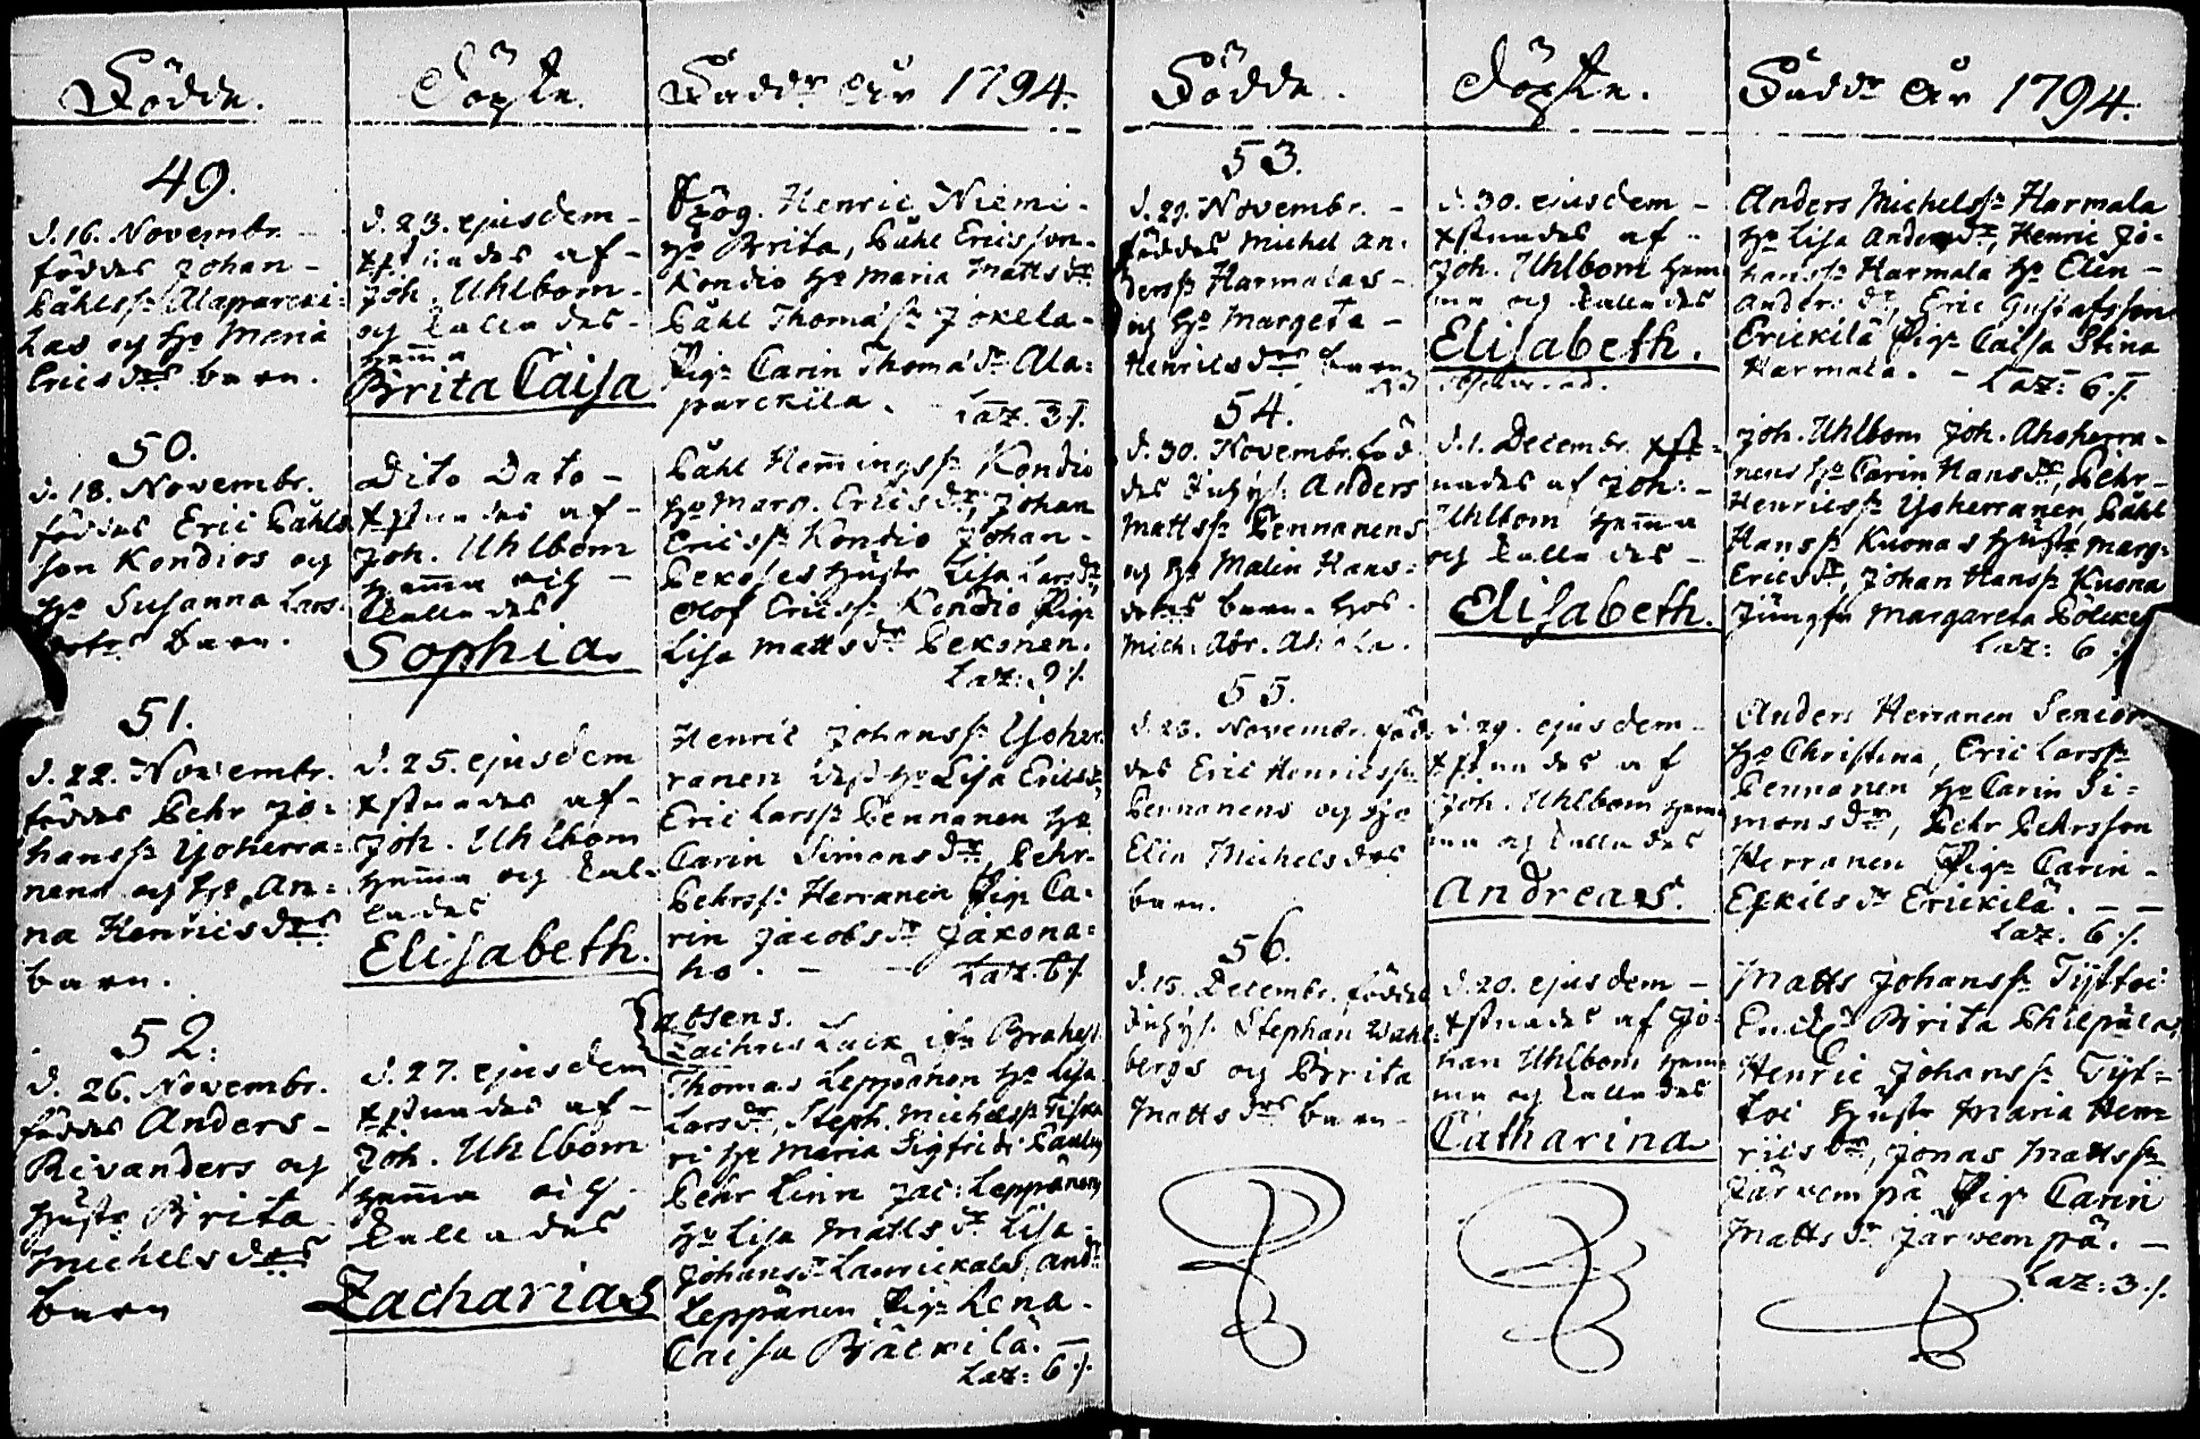 Födde.
Döpte.
Fadd:r År 1794.
49.
d. 16. Novembr.
föddes Johan
Påhlss: Alaparcki-
las og H:o Maria
Ericsd:rs barn.
d. 23. ejusdem
xstnades af
Joh. Uhlbom
og kallades
hema
Brita Caisa
Henric Niemi
H:o Brita, Påhl Ericsson
Kondio H:o Maria Mattsd:r
Påhl Thomass: Jokela
Pig: Carin Thomasd:r Ala-
parckila.
Laz. 3 ./.
50.
d. 18. Novembr.
föddes Eric Påhls
son Kondios og
H:o Susanna Lars-
barn.
Dito Dato
xstnades af
Joh. Uhlbom
hema och
kallades
Sophia
Påhl Hemingss: Kondio
H:o Marg. Ericsd:r, Johan
Ericss: Kondio Johan
Pekoses Hustr Lisa Larsd:r
Olof Ericss: Kondio Pig:
Lisa Mattsd:r Pekonen.
Laz: 9 ./.
51.
d. 22. Novembr.
föddes Pehr Jo-
hanss: Yoherra-
nens og H:o An-
na Henricsd:rs
barn.
d. 25. ejusdem
xstnades af
Joh. Uhlbom
hema og kal-
lades
Elisabeth.
Henric Johanss: Yoher
ranen H:o Lisa Ericsd:r
Eric Larss: Pennanen H:o
Carin Simonsd:r, Pehr
Pehrss: Herranen Pig: Ca-
rin Jacobsd:r Jakona-
ho.
Laz. 6 ./.
52:
d. 26. Novembr.
föddes Anders
Rivanders og
Hustr Brita
Michelsd:rs
barn
d. 27. ejusdem
xstnades af
Joh. Uhlbom
hema och
kallades
Zacharias
absens.
Zachris Lack ifr Brahest.
Thomas Leppänen H:o Lisa
Larsd:r, Steph. Michelss:
ri H:o Maria Sigfridi
Pehr Linn Jac: Leppänen
H:o Lisa Mattsd:r Lisa
Johansd:r Laurickala, And:
Leppänen Pig: Lena
Caisa Bäckilä.
Laz: 6 ./.
Födde.
Döpte.
Fadd:r År 1794.
53.
d. 29. Novembr.
föddes Michel An-
derss: Harmalas
og H:o Margeta
Henricsd:rs barn
d. 30. ejusdem
xstnades af
Joh. Uhlbom hem
ma og kallades
Elisabeth.
Anders Michelss: Harmala
H:o Lisa Andersd:r, Henric Jo-
hanss: Harmala H:o Elin
Anders d:r, Eric Gustafsson
Erickilä Pig: Caisa Stina
Harmala.
Laz: 6 ./.
54.
d. 30. Novembr. föd
des Inhys: Anders
Mattss: Pennanens
og H:o Malin Hans-
dotrs barn hos
Mich: Abr. Ahola.
d. 1. Decembr. xst-
nades af Joh:
Uhlbom hema
og kallades
Elisabeth.
Joh. Uhlbom Joh. Ahoherra-
nens H:o Carin Hansd:r, Pehr
Henricss: Yoherranen, Påhl
Hanss: Kuonas Hustr Marg:
Ericsd:r, Johan Hanss: Kuona
Jungfr Margareta
Laz: 6 ./.
55.
d. 23. Novembr. föd-
des Eric Henricss:
Pennanens og H:o
Elin Michelsd:rs
barn.
d. 29. ejusdem
xstnades af
Joh. Uhlbom hem
ma og kallades
Andreas.
Anders Herranen Senior
H:o Christina, Eric Larss:
Pennanen H:o Carin Si-
monsd:r, Pehr Pehrsson
Herranen Pig: Carin
Eskilsd:r Erickilä.
Laz. 6 ./.
56.
d. 15. Decembr. föddes
Inhys: Stephan Wahl-
bergs og Brita
Mattsd:rs barn
d. 20. ejusdem
xstnades af Jo-
han Uhlbom hem
ma og kallades
Catharina
Matts Johanss: Tyftoi
Brita
Henric Johanss: Tyf-
toi Hustr Maria Hen-
ricsd:r, Jonas Mattss:
Järwempä Pig: Carin
Mattsd:r Järwempä.
Laz: 3 ./.